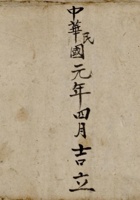 中華民國元年四月吉立